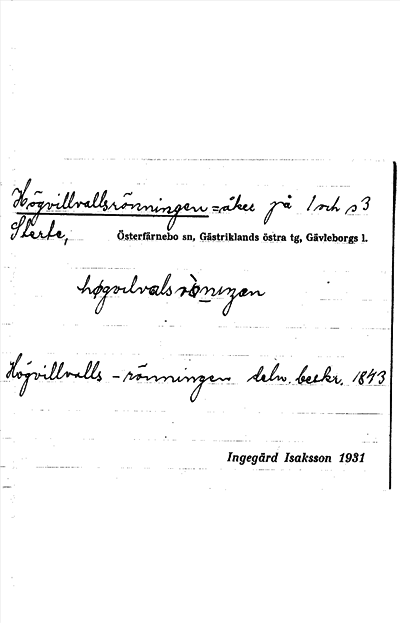 Högvillvallsrönningen = åker på 1 och 3
Sterte,
Österfärnebo sn, Gästriklands östra tg, Gävleborgs l.
høgvilvalsrö̀niŋen
Högvillvalls-rönningen deln. beskr. 1843
Ingegärd Isaksson 1931